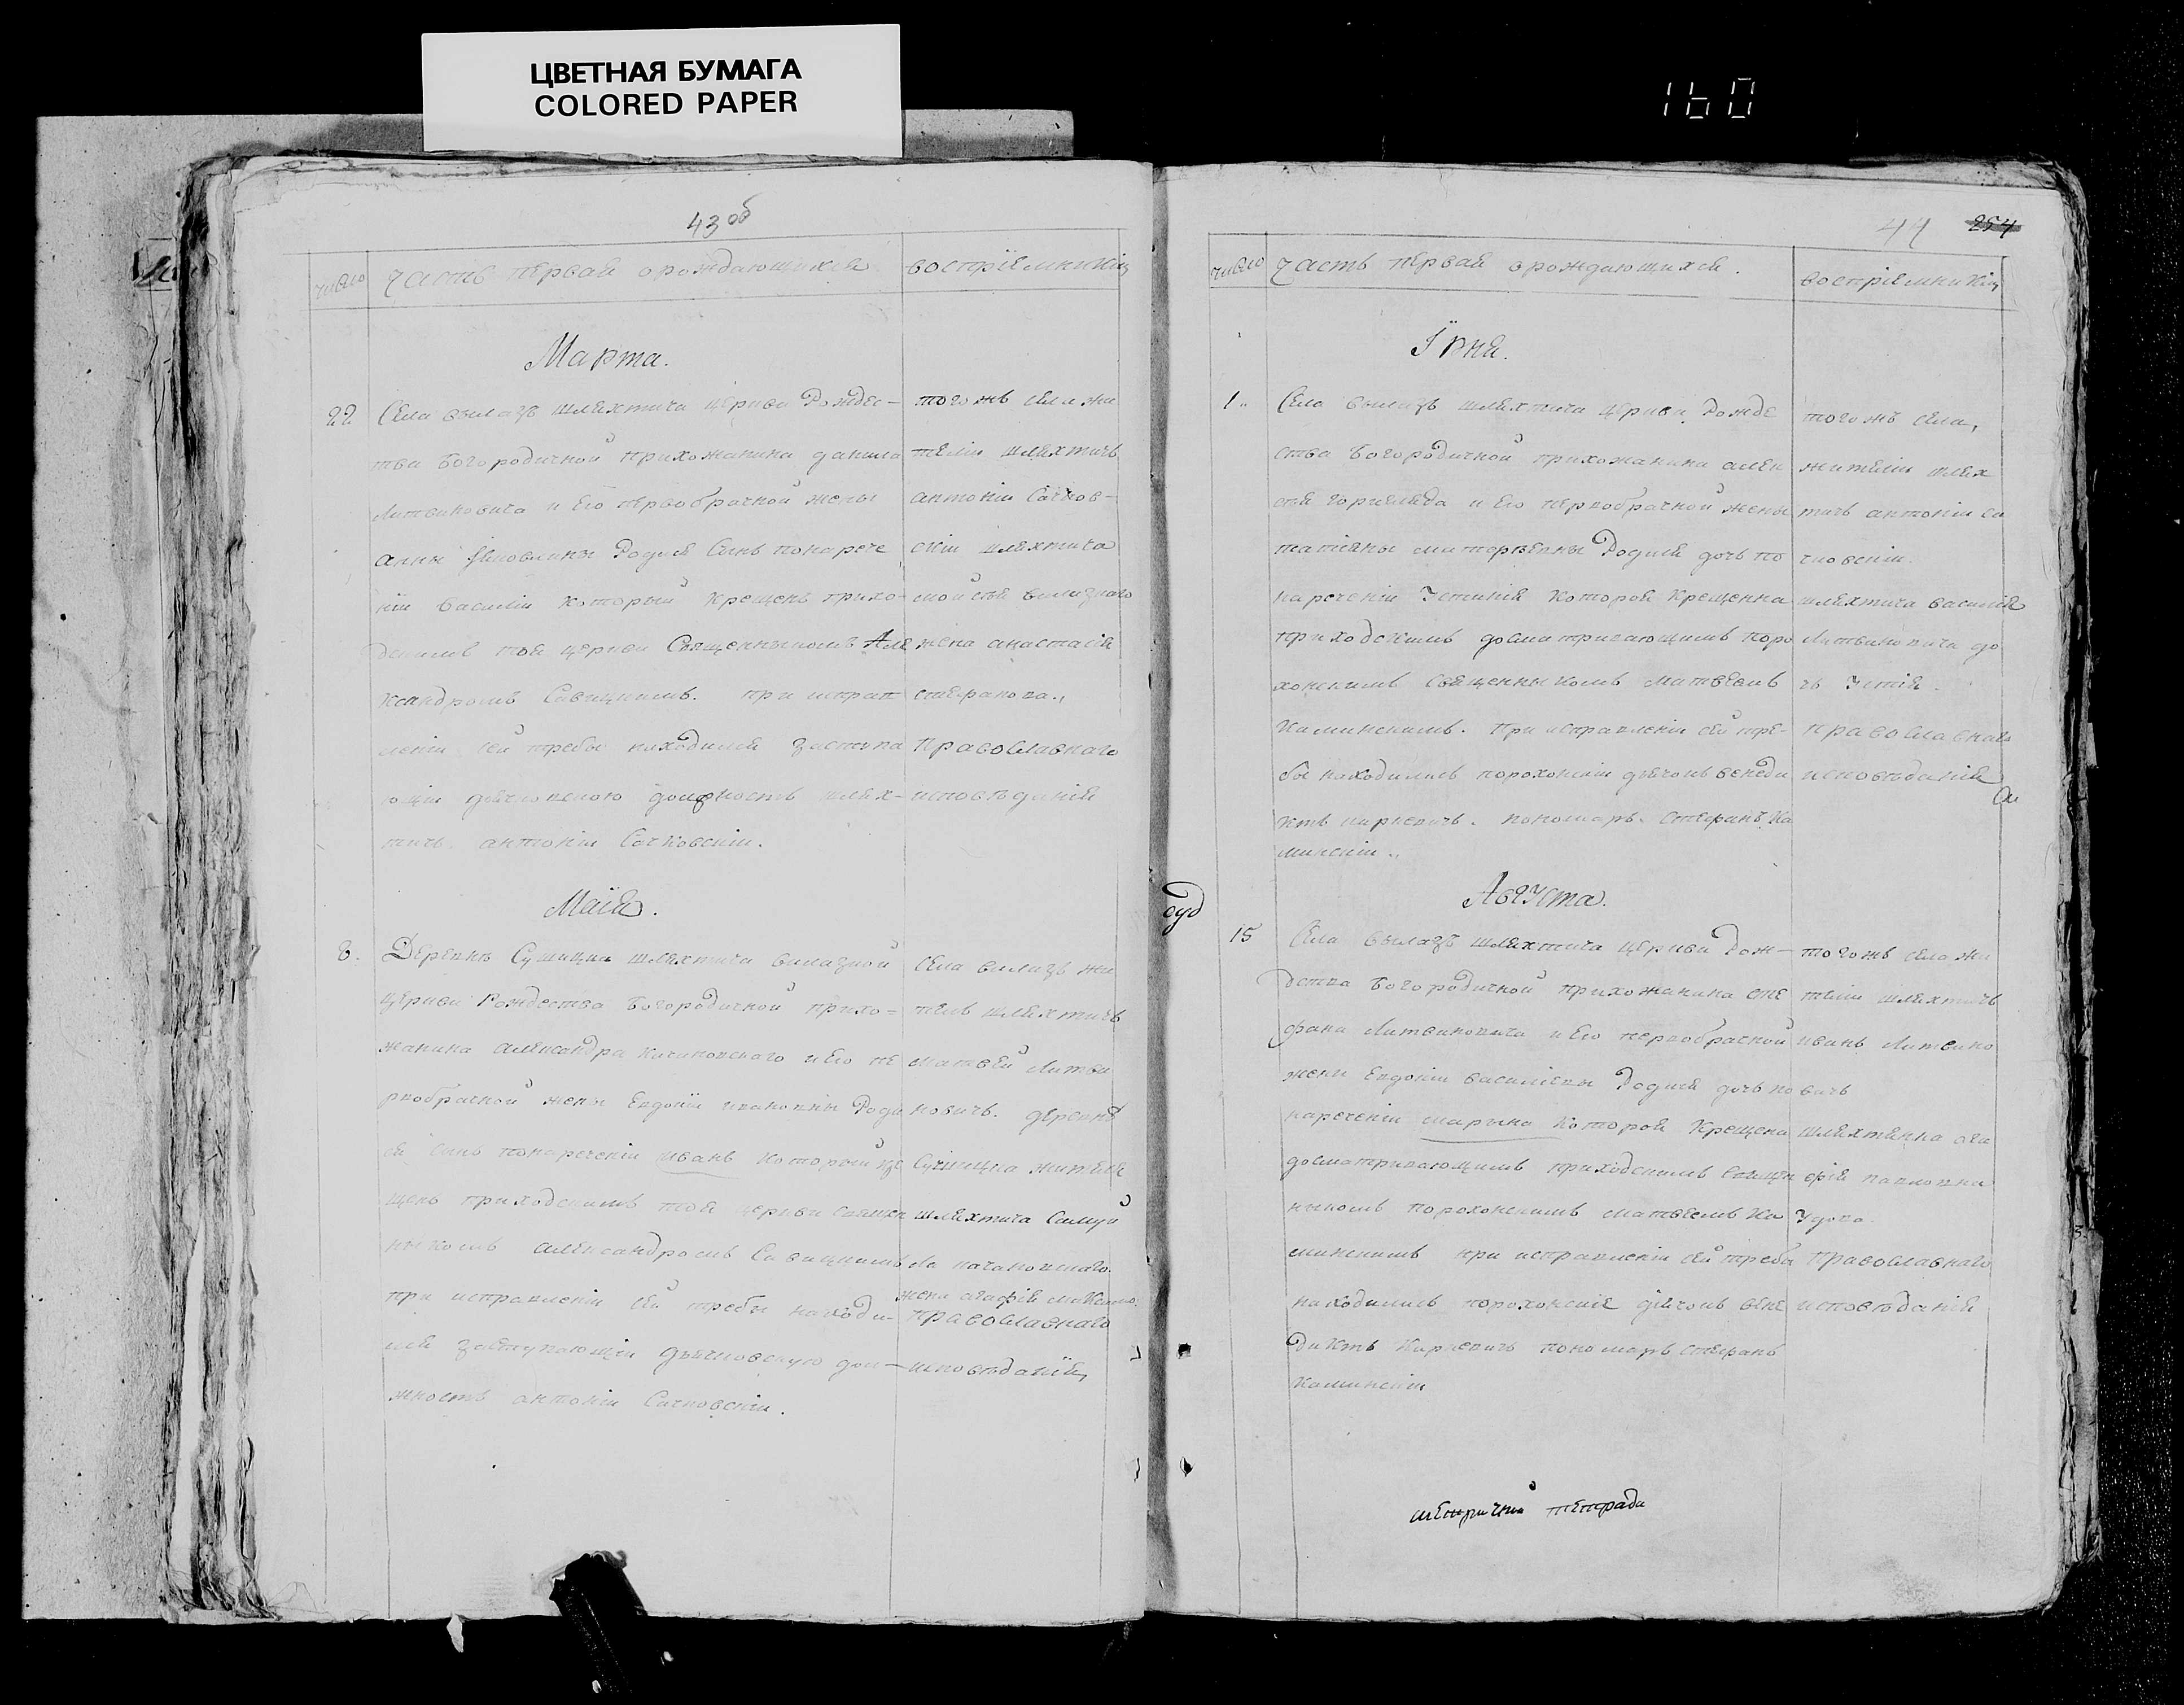 ЦВЕТНАЯ БУМАГА
COLORED PAPER
160
43 об
число
часть первая о рождающихся
воспріемники
Марта.
22
Села вылазъ шляхтича церкви Рождес-
тва богородичной прихожанина данила
Литвиновича и его первобрачной жены
анны Родися Сынъ понарече
ніи василіи который крещенъ прихо-
дскимъ тоя церкви Священникомъ Але
ксандромъ Савицкимъ. при исправ
леніи сей требы находился заступа
ющіи дячковскою должность шлях-
тичь антоніи Сачковскіи.
тогожъ села жи
телія шляхтичь
антоніи Сачков-
скіи шляхтича
жена анастасія
стефанова.,
Православнаго
исповѣданія
Маія.
8.
Деревнѣ Сушицка шляхтича вылазкой
церкви Рождества богородичной прихо-
жанина александра Качановскаго и его пе
рвобрачной жены Евдокіи ивановны Роди
ся сынъ понареченіи иванъ который кре
щенъ приходскимъ тоя церкви священ
никомъ александромъ Савицкимъ
при исправленіи сей требы находи-
лся заступающіи дьячковскую дол-
жность антоніи Сачковскіи.
села вылазъ жи
тель шляхтичь
матвѣй Литви
новичъ. деревнѣ
Сушицка жителя
шляхтича Самуй
ла качановскаго
жена агафія
православнаго
исповѣданія
44 254
число
часть первая о рождающихся.
воспріемники
Іюня.
1..
Села вылазъ шляхтича церкви Рожде
ства богородичной прихожанина алек
сѣя и его первобрачной жены
татіяны матвѣевны Родися дочь по
нареченіи Устинія которая крещенна
приходскимъ досматривающимъ поро
хонскимъ священникомъ матвѣемъ
Каминскимъ. при исправленіи сей тре-
бы находились порохонскіи дьячокъ венеди
ктъ киркевичъ. пономарь. стефанъ Ка
минскіи.,
тогожъ села,
жителіи шлях
тичь антоніи са
чковскіи.
шляхтича василія
Литвиновича до
чь Устія.
православнаго
исповѣданія
Августа.
15
Села вылазъ шляхтича церкви Рож-
дства богородичной прихожанина сте
фана Литвиновича и его первобрачной
жены Евдокіи василіевы Родися дочь по
нареченіи марына которая крещена
досматривающимъ приходскимъ свяще
нникомъ порохонскимъ матвѣемъ Ка
минскимъ при исправленіи сей требы
находились порохонскіе дячокъ вене
диктъ Киркевичъ пономарь стефанъ
каминскіи
тогожъ села жи
теліи шляхтичь
иванъ Литвино
вичъ
шляхтянка ага
фія павловна
православнаго
исповѣданія
метричной тетради